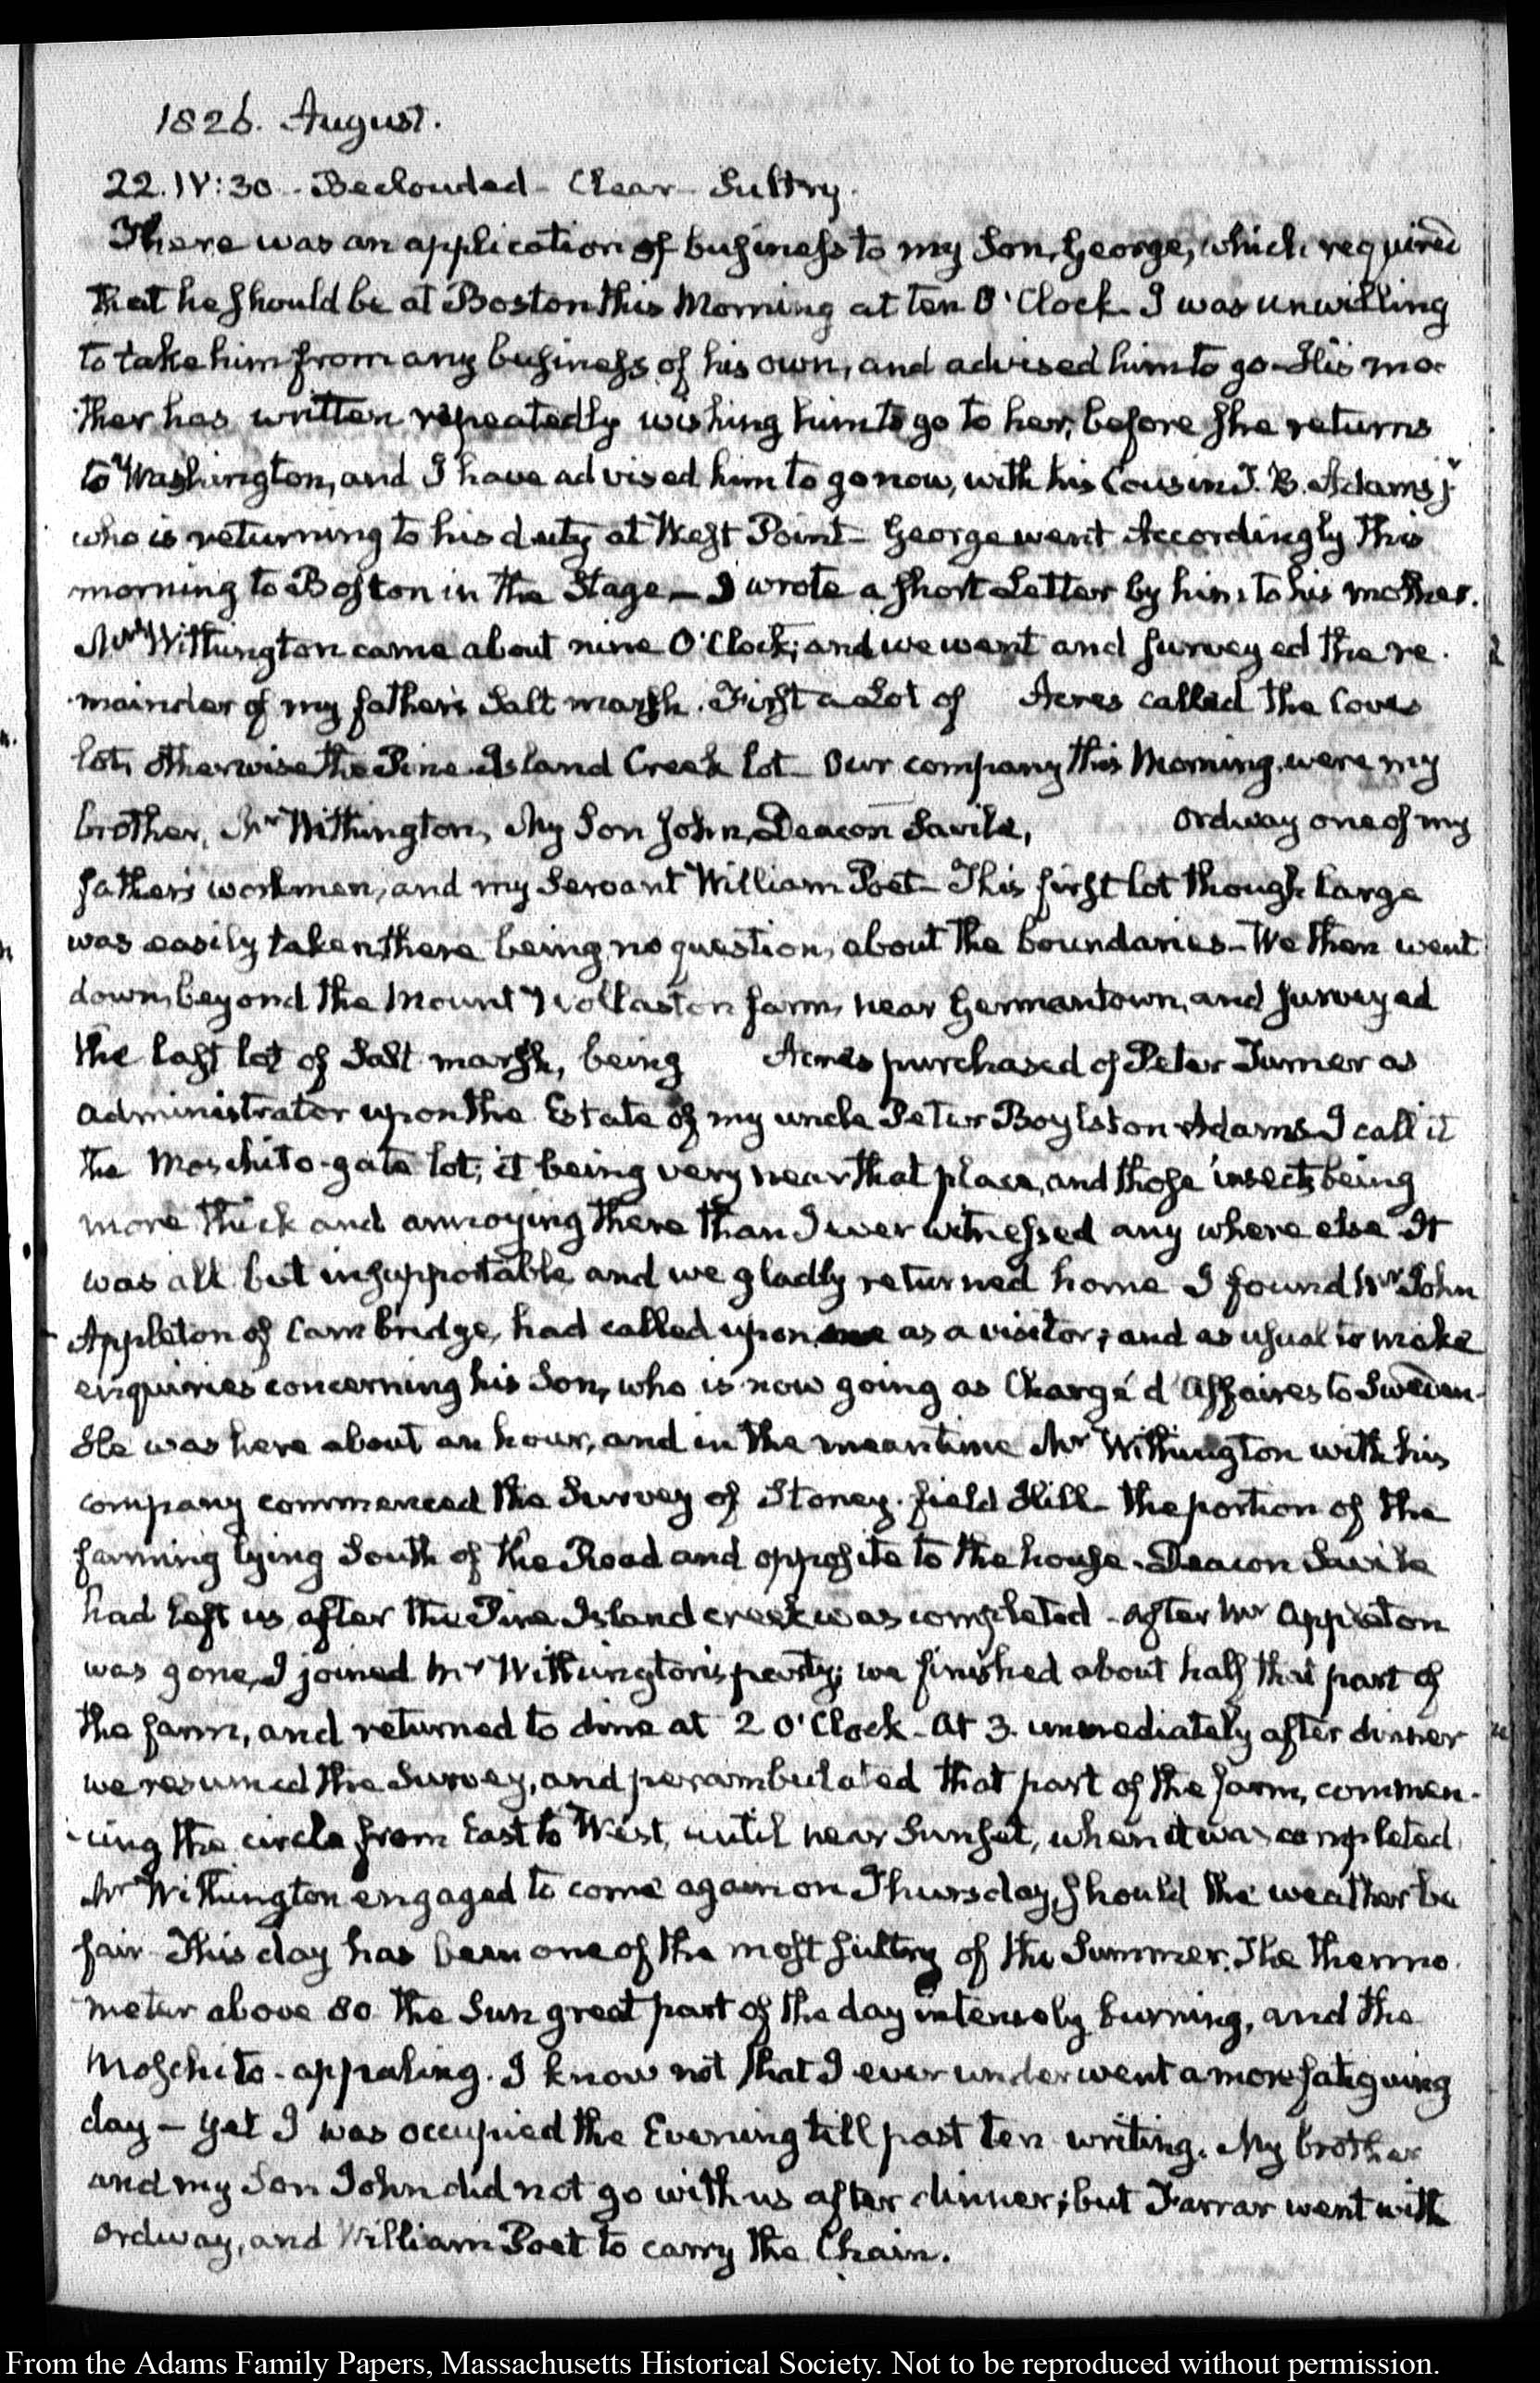 1826. August.
22. IV:30. Beclouded - Clear - Sultry.
There was an application of business to my Son, George, which required
that he should be at Boston this Morning at ten O'Clock. I was unwilling
to take him from any business of his own, and advised him to go - His mo-
ther has written repeatedly wishing him to go to her, before she returns
to Washington, and I have advised him to go now, with his Cousin T. B. Adams jr
who is returning to his duty at West Point - George went Accordingly this
morning to Boston in the Stage - I wrote a short Letter by him to his mother.
Mr Withington came about nine O'Clock; and we went and surveyed the re-
mainder of my father's Salt marsh. First a Lot of Acres called the Coves
lot, otherwise the Pine Island Creek lot - Our company this Morning were my
brother, Mr Withington, My Son John, Deacon Savile, Ordway one of my
father's workmen, and my Servant William Poet - This first lot though large
was easily taken, there being no question, about the boundaries - We then went
down, beyond the Mount Wollaston farm, near Germantown, and surveyed
the last lot of Salt marsh, being Acres purchased of Peter Turner as
administrator upon the Estate of my uncle Peter Boylston Adams. I call it
the Moschito-gate lot; it being very near that place, and those insects being
more thick and annoying there than I ever witnessed any where else. It
was all but insupportable, and we gladly returned home. I found Mr John
Appleton of Cambridge, had called upon me as a visitor; and as usual to make
enquiries concerning his Son, who is now going as Chargé d'Affaires to Sweden.
He was here about an hour, and in the meantime Mr Withington with his
company commenced the Survey of Stoney-field Hill - the portion of the
farming lying South of the Road and opposite to the house - Deacon Savile
had left us after the Pine Island creek was completed - After Mr Appleton
was gone, I joined Mr Withington's party; we finished about half that part of
the farm, and returned to dine at 2 O'Clock - At 3. immediately after dinner
we resumed the Survey, and perambulated that part of the farm, commen-
cing the circle from East to West, until near Sunset, when it was completed
Mr Withington engaged to come again on Thursday, should the weather be
fair - This day has been one of the most sultry of the Summer. The thermo-
meter above 80 the Sun great part of the day intensely burning, and the
Moschito-appaling. I know not that I ever underwent a more fatiguing
day - yet I was occupied the Evening till past ten writing. My brother
and my Son John did not go with us after dinner; but Farrar went with
Ordway, and William Poet to carry the Chain.
From the Adams Family Papers, Massachusetts Historical Society. Not to be reproduced without permission.